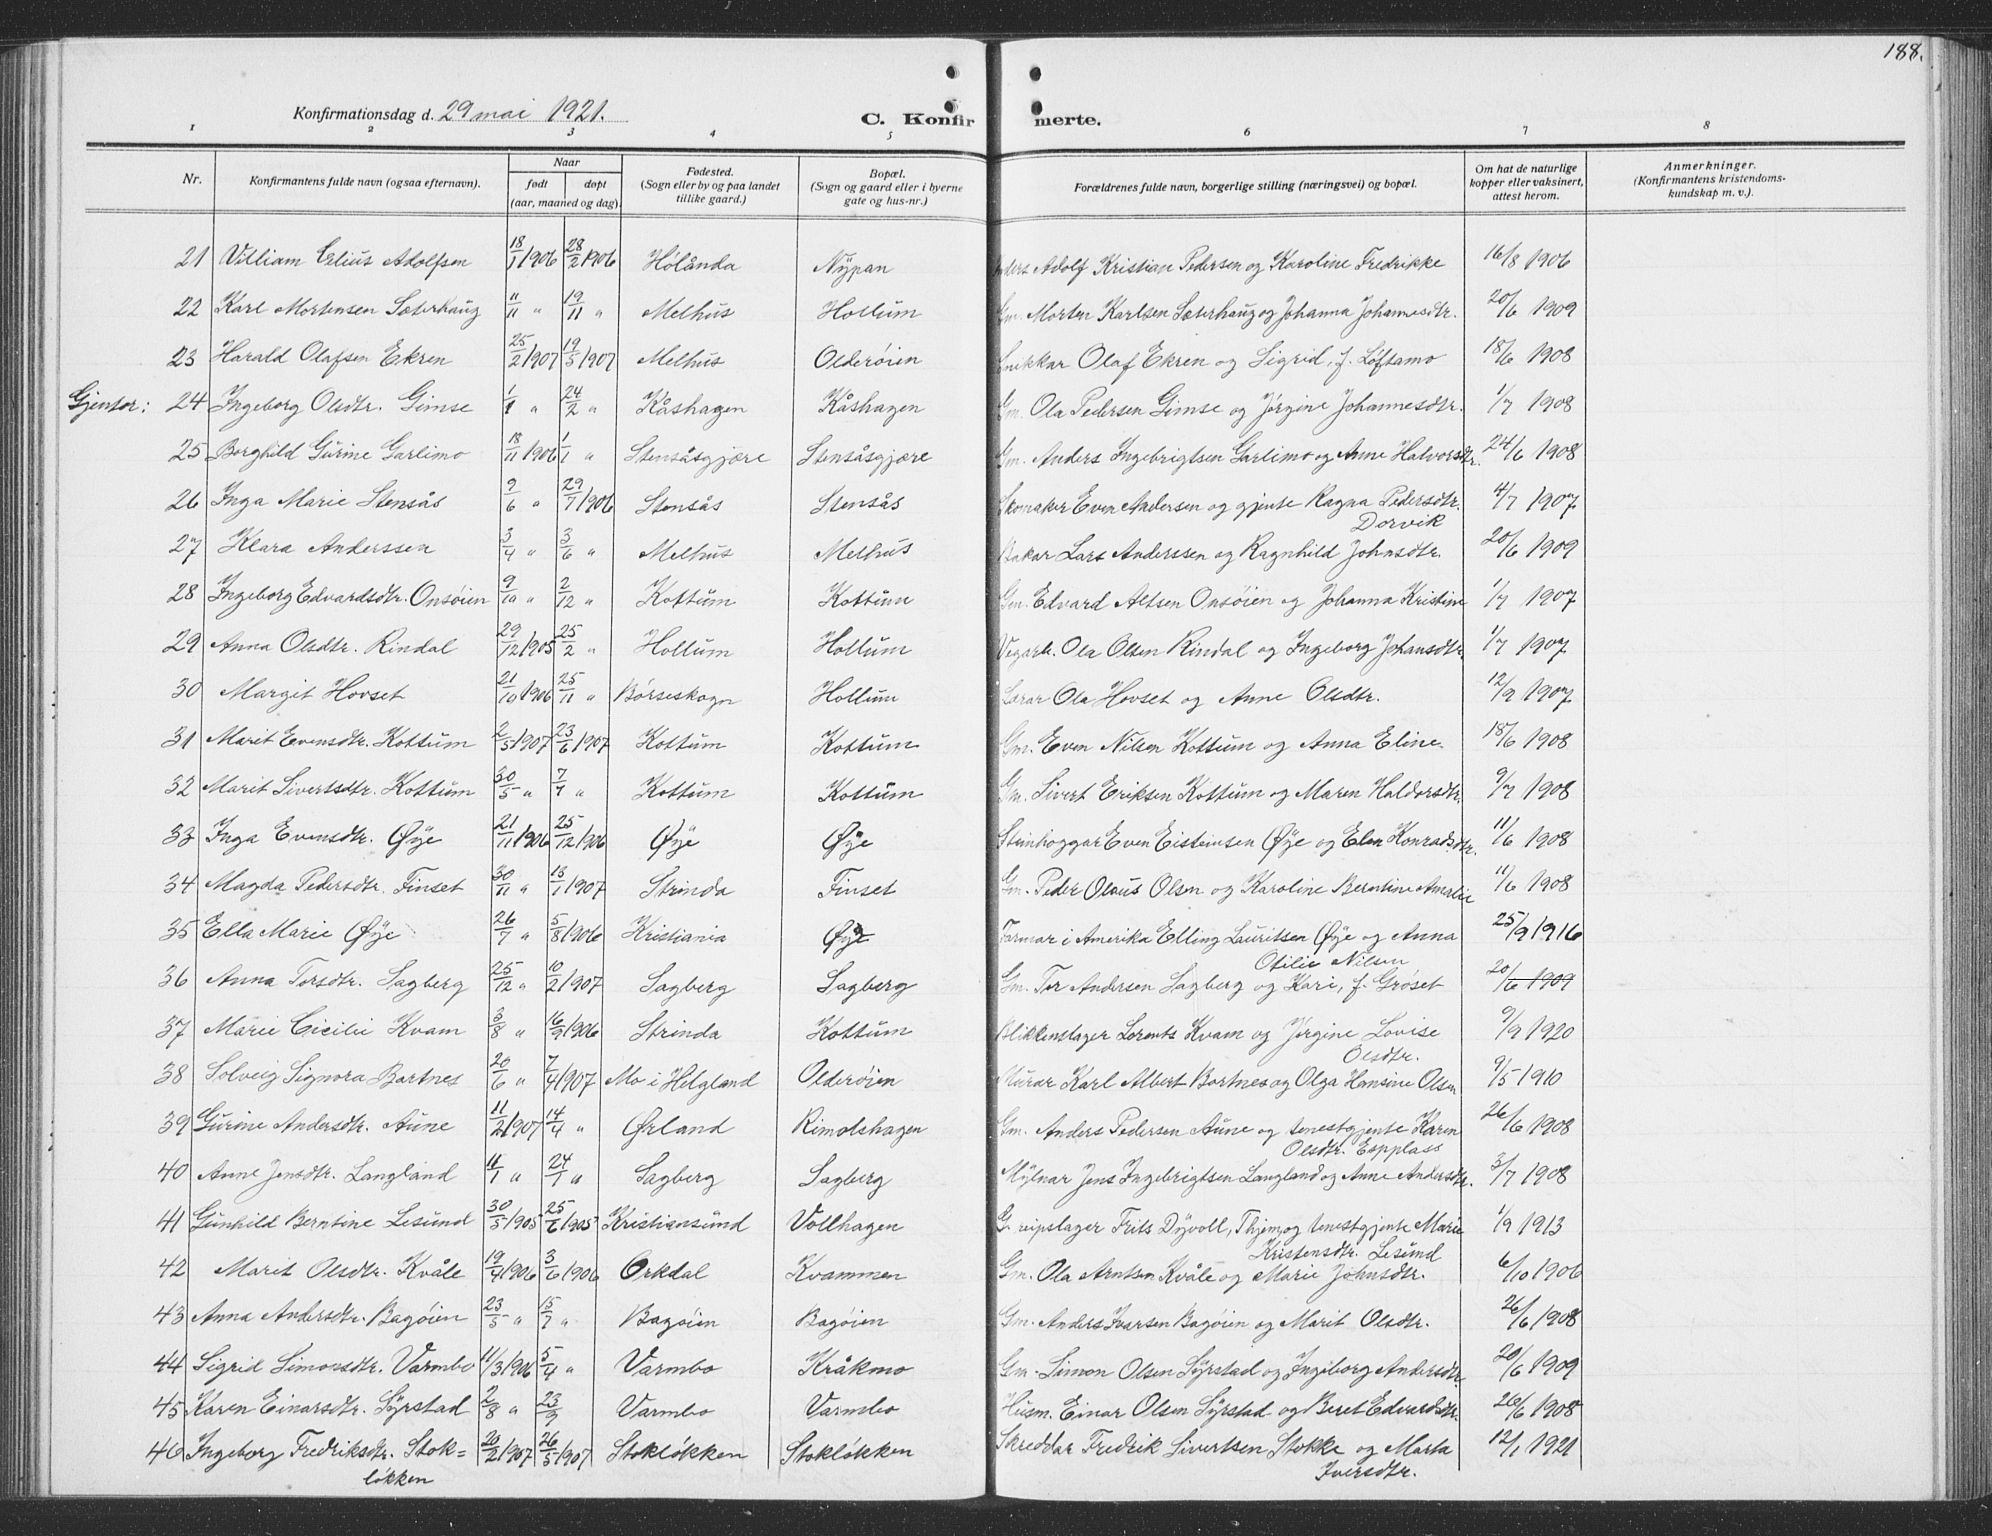 188.
Konfirmationsdag d. 29 mai 1921.
C. Konfir merte.
1 2 3 4 5 6 7 8
Nr. Konfirmantens fulde navn (ogsaa efternavn). Naar født døpt (aar, maaned og dag). Fødested. (Sogn eller by og paa landet tillike gaard.) Bopæl. (Sogn og gaard eller i byerne gate og hus-nr.) Forældrenes fulde navn, borgerlige stilling (næringsvei) og bopæl. Om hat de naturlige kopper eller vaksinert, attest herom. Anmerkninger. (Konfirmantens kristendoms- kundskap m. v.).
21 Villiam Elius Adolfsen 18/1 1906 28/2 1906 Hølånda Nýpan Anders Adolf Kristian Pedersen og Karoline Fredrikke 16/8 1906
22 Karl Mortensen Sæterhaug 11/11 " 19/11 " Melhus Hollum Gm. Morten Karlsen Sæterhaug og Johanna Johannesdtr. 20/6 1909
23 Harald Olafsen Ekren 25/2 1907 19/5 1907 Melhus Olderøien Snikkar Olaf Ekren og Sigrid, f. Løftamo 18/6 1908
Gjentor: 24 Ingeborg Olsdtr. Gimse 1/1 " 24/2 " Kåshagen Kåshagen Gm. Ola Pedersen Gimse og Jørgine Johannesdtr. 1/7 1908
25 Borghild Gurine Garlimo 18/11 1906 1/1 " Stensåsgjære Stensåsgjære Gm. Anders Ingebrigtsen Garlimo og Anne Halvorsdtr. 24/6 1908
26 Inga Marie Stensås 9/6 " 29/7 1906 Stensås Stensås Skomaker Even Andersen og gjente Ragna Pedersdtr. 4/7 1907
Dorvik
27 Klara Anderssen 3/4 " 3/6 " Melhus Melhus Bakar Lars Anderssen og Ragnhild Johnsdtr. 20/6 1909
28 Ingeborg Edvardsdtr. Onsøien 9/10 " 2/12 " Kottum Kottum Gm. Edvard Altsen Onsøien og Johanna Kristine 1/7 1907
29 Anna Olsdtr. Rindal 29/12 1905 25/2 " Hollum Hollum Vegarb. Ola Olsen Rindal og Ingeborg Johansdtr. 1/7 1907
30 Margit Hovset 21/10 1906 25/11 " Børseskogn Hollum Lærar Ola Hovset og Anne Olsdtr. 12/9 1907
31 Marit Evensdtr. Kottum 2/5 1907 23/6 1907 Kottum Kottum Gm. Even Nilsen Kottum og Anna Eline 18/6 1908
32 Marit Sivertsdtr. Kottum 30/5 " 7/7 " Kottum Kottum Gm. Sivert Eriksen Kottum og Maren Haldorsdtr. 9/7 1908
33 Inga Evensdtr. Øÿe 21/11 1906 25/12 1906 Øÿe Øÿe Steinhoggar Even Eisteinsen Øÿe og Elen Konradsdtr. 11/6 1908
34 Magda Pedersdtr. Finset 30/11 " 13/1 1907 Strinda Finset Gm. Peder Olaus Olsen og Karoline Berntine Amalie 11/6 1908
35 Ella Marie Øÿe 26/7 " 5/8 1906 Kristiania Øÿe Farmar i Amerika Elling Lauritsen Øÿe og Anna 25/9 1916
Otilie Nilsen
36 Anna Torsdtr. Sagberg 25/12 " 10/2 1907 Sagberg Sagberg Gm. Tor Andersen Sagberg og Kari, f. Grøset 20/6 1909
37 Marie Cicilie Kvam 3/8 " 16/9 1906 Strinda Kottum Blikkenslager Lorents Kvam og Jørgine Lovise 9/9 1920
Olsdtr.
38 Solveig Signora Bartnes 20/6 " 7/4 1907 Mo i Helgland Olderøien Murar Karl Albert Bartnes og Olga Hansine Olsen 9/5 1910
39 Gurine Andersdtr. Aune 11/2 1907 14/4 " Ørland Rimolshagen Gm. Anders Pedersen Aune og tenestgjente Karen 26/6 1908
Olsdtr. Espplass
40 Anne Jensdtr. Langland 11/1 " 24/1 " Sagberg Sagberg Mýlnar Jens Ingebrigtsen Langland og Anne Andersdtr. 3/7 1908
41 Gunhild Berntine Lesund 30/5 1905 25/6 1905 Kristiansund Vollhagen G. reipslager Frits Dývoll, Thjem, og tenestgjente Marie 1/9 1913
Kristensdtr. Lesund
42 Marit Olsdtr. Kvåle 19/4 1906 3/6 1906 Orkdal Kvammen Gm. Ola Arntsen Kvåle og Marie Johnsdtr. 6/10 1906
43 Anna Andersdtr. Bagøien 23/5 " 15/7 " Bagøien Bagøien Gm. Anders Ivarsen Bagøien og Marit Olsdtr. 26/6 1908
44 Sigrid Simonsdtr. Varmbo 11/3 1906 5/4 " Varmbo Kråkmo Gm. Simon Olsen Sýrstad og Ingeborg Andersdtr. 20/6 1909
45 Karen Einarsdtr. Sýrstad 2/8 " 23/9 Varmbo Varmbo Husm. Einar Olsen Sýrstad og Beret Edvardsdtr. 26/6 1908
46 Ingeborg Fredriksdtr. Stok= 20/2 1907 26/5 1907 Stokløkken Stokløkken Skreddar Fredrik Sivertsen Stokke og Marta 12/1 1921
løkken Iversdtr.